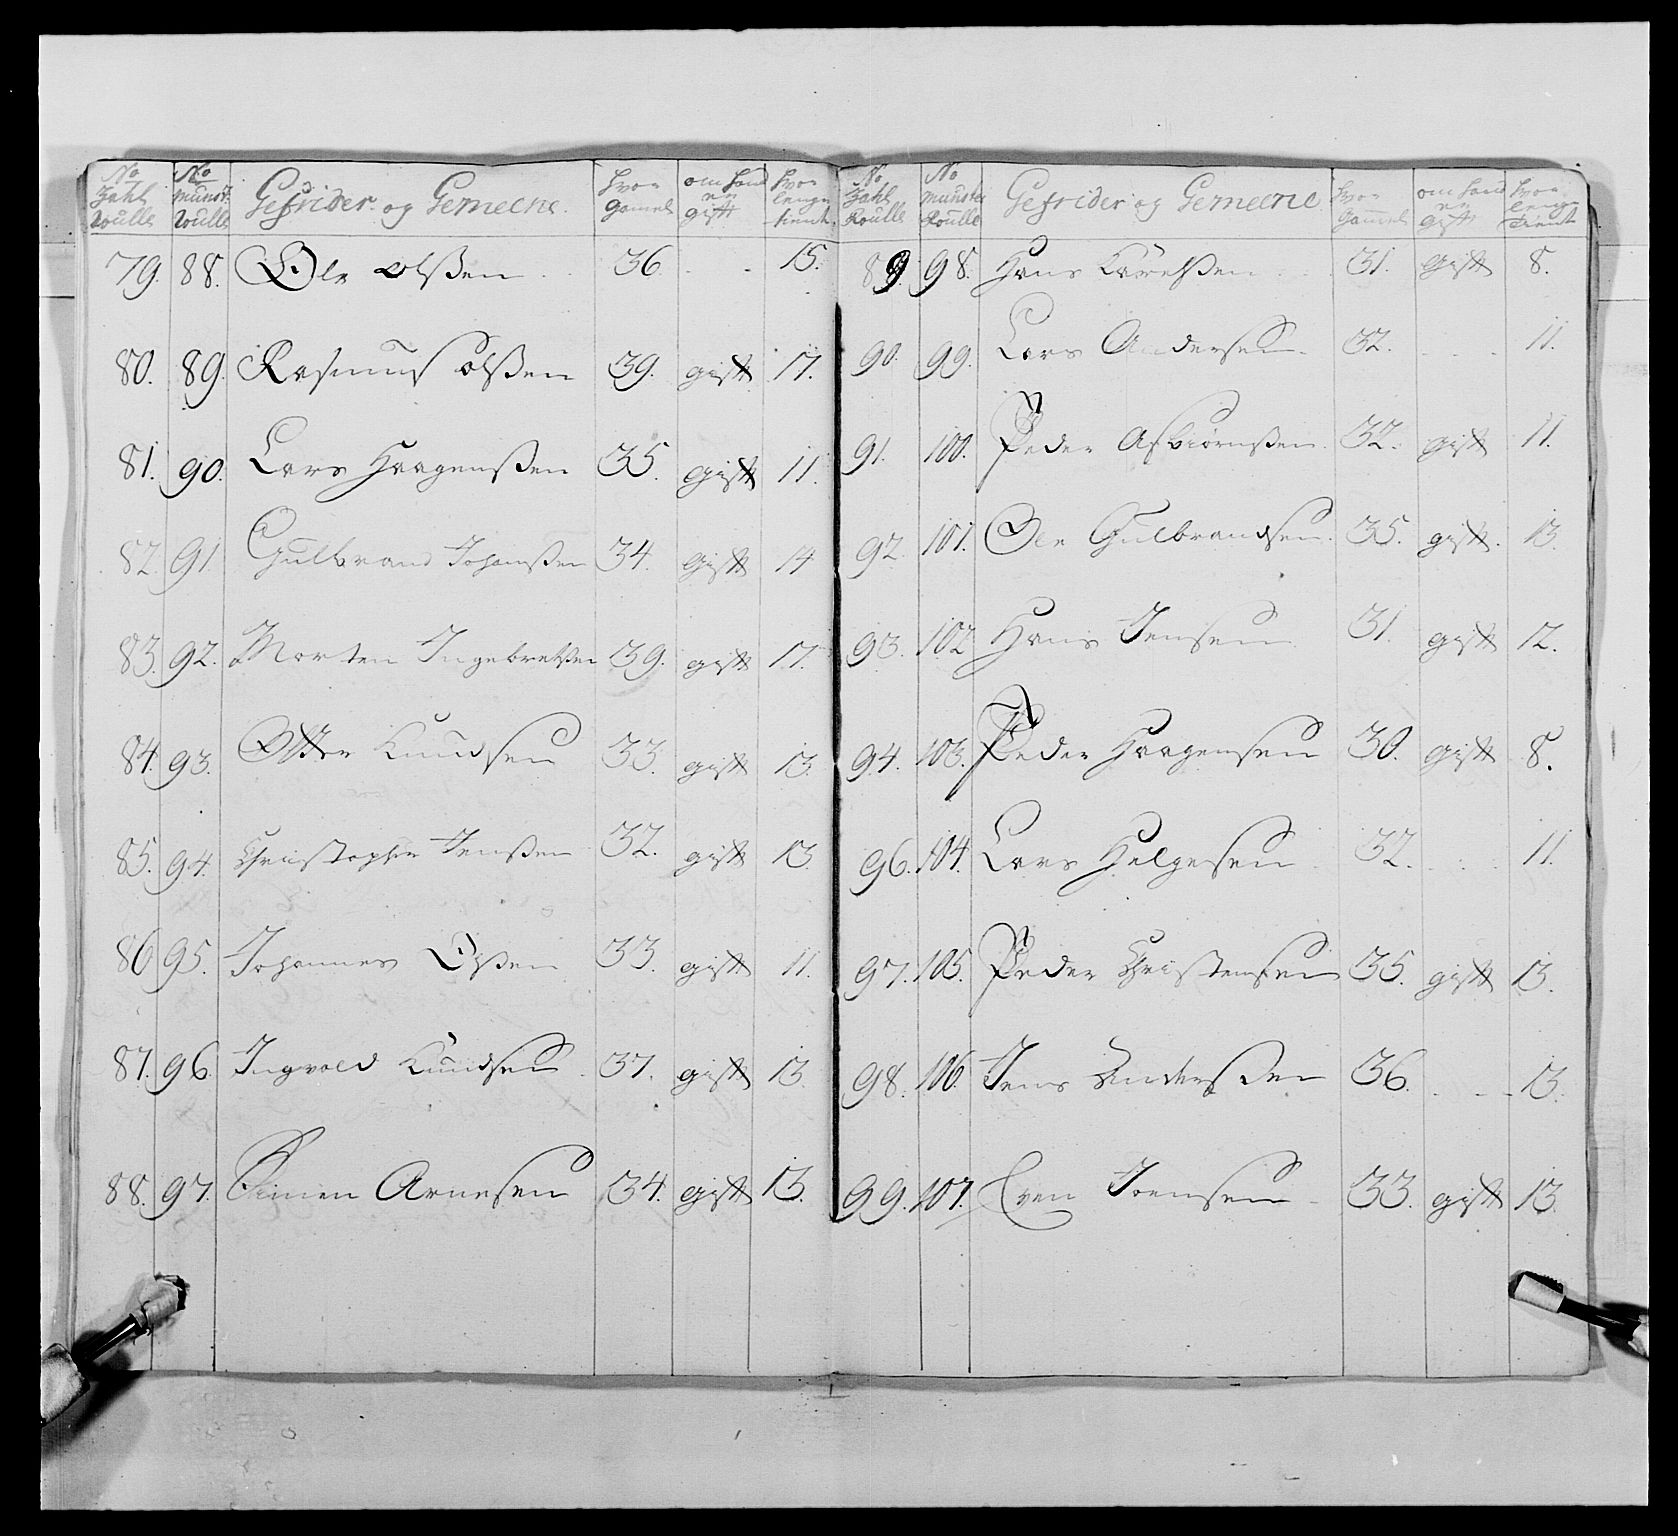 No Zahl Roulle No Munst: Roulle Gefrider og Gemeene. hvor Gamel om hand er gift hvor lenge tient
79. 88. Ole Olßen 36. - - 15.
80. 89. Rasmus Olßen 39. gift 17.
81. 90. Lars Haagenßen 35. gift 11.
82. 91. Gulbrand Johanßen 34. gift 14
83. 92. Morten Ingebretßen 39. gift 17.
84. 93. Otter Knudsen 33. gift 13.
85. 94. Christopher Jenßen 32. gift 13.
86 95. Johannes Olßen 33. gift 11.
87. 96. Ingvold Knudsen 37. gift 13.
88. 97. Simen Arnesen 34. gift 13.
No Zahl Roulle No Munster Roulle Gefrider og Gemeene hvor Gammel om hand er gift hvor lenge tient
89. 98. Hans 31. gift 8.
90. 99. Lars Andersen. 32. - - - 11.
91. 100. Peder Asbiørnßen. 32. gift 11.
92. 101. Ole Gulbrandsen. 35. gift. 13.
93. 102. Hans Jensen 31. gift 12.
94. 103. Peder Haagensen 30. gift 8.
96. 104. Lars Helgesen 32. - - - 11.
97. 105. Peder Christensen 35. gift 13.
98. 106. Jens Anderßen 36. - - - 13.
99. 107. Even Joensen 33. gift 13.